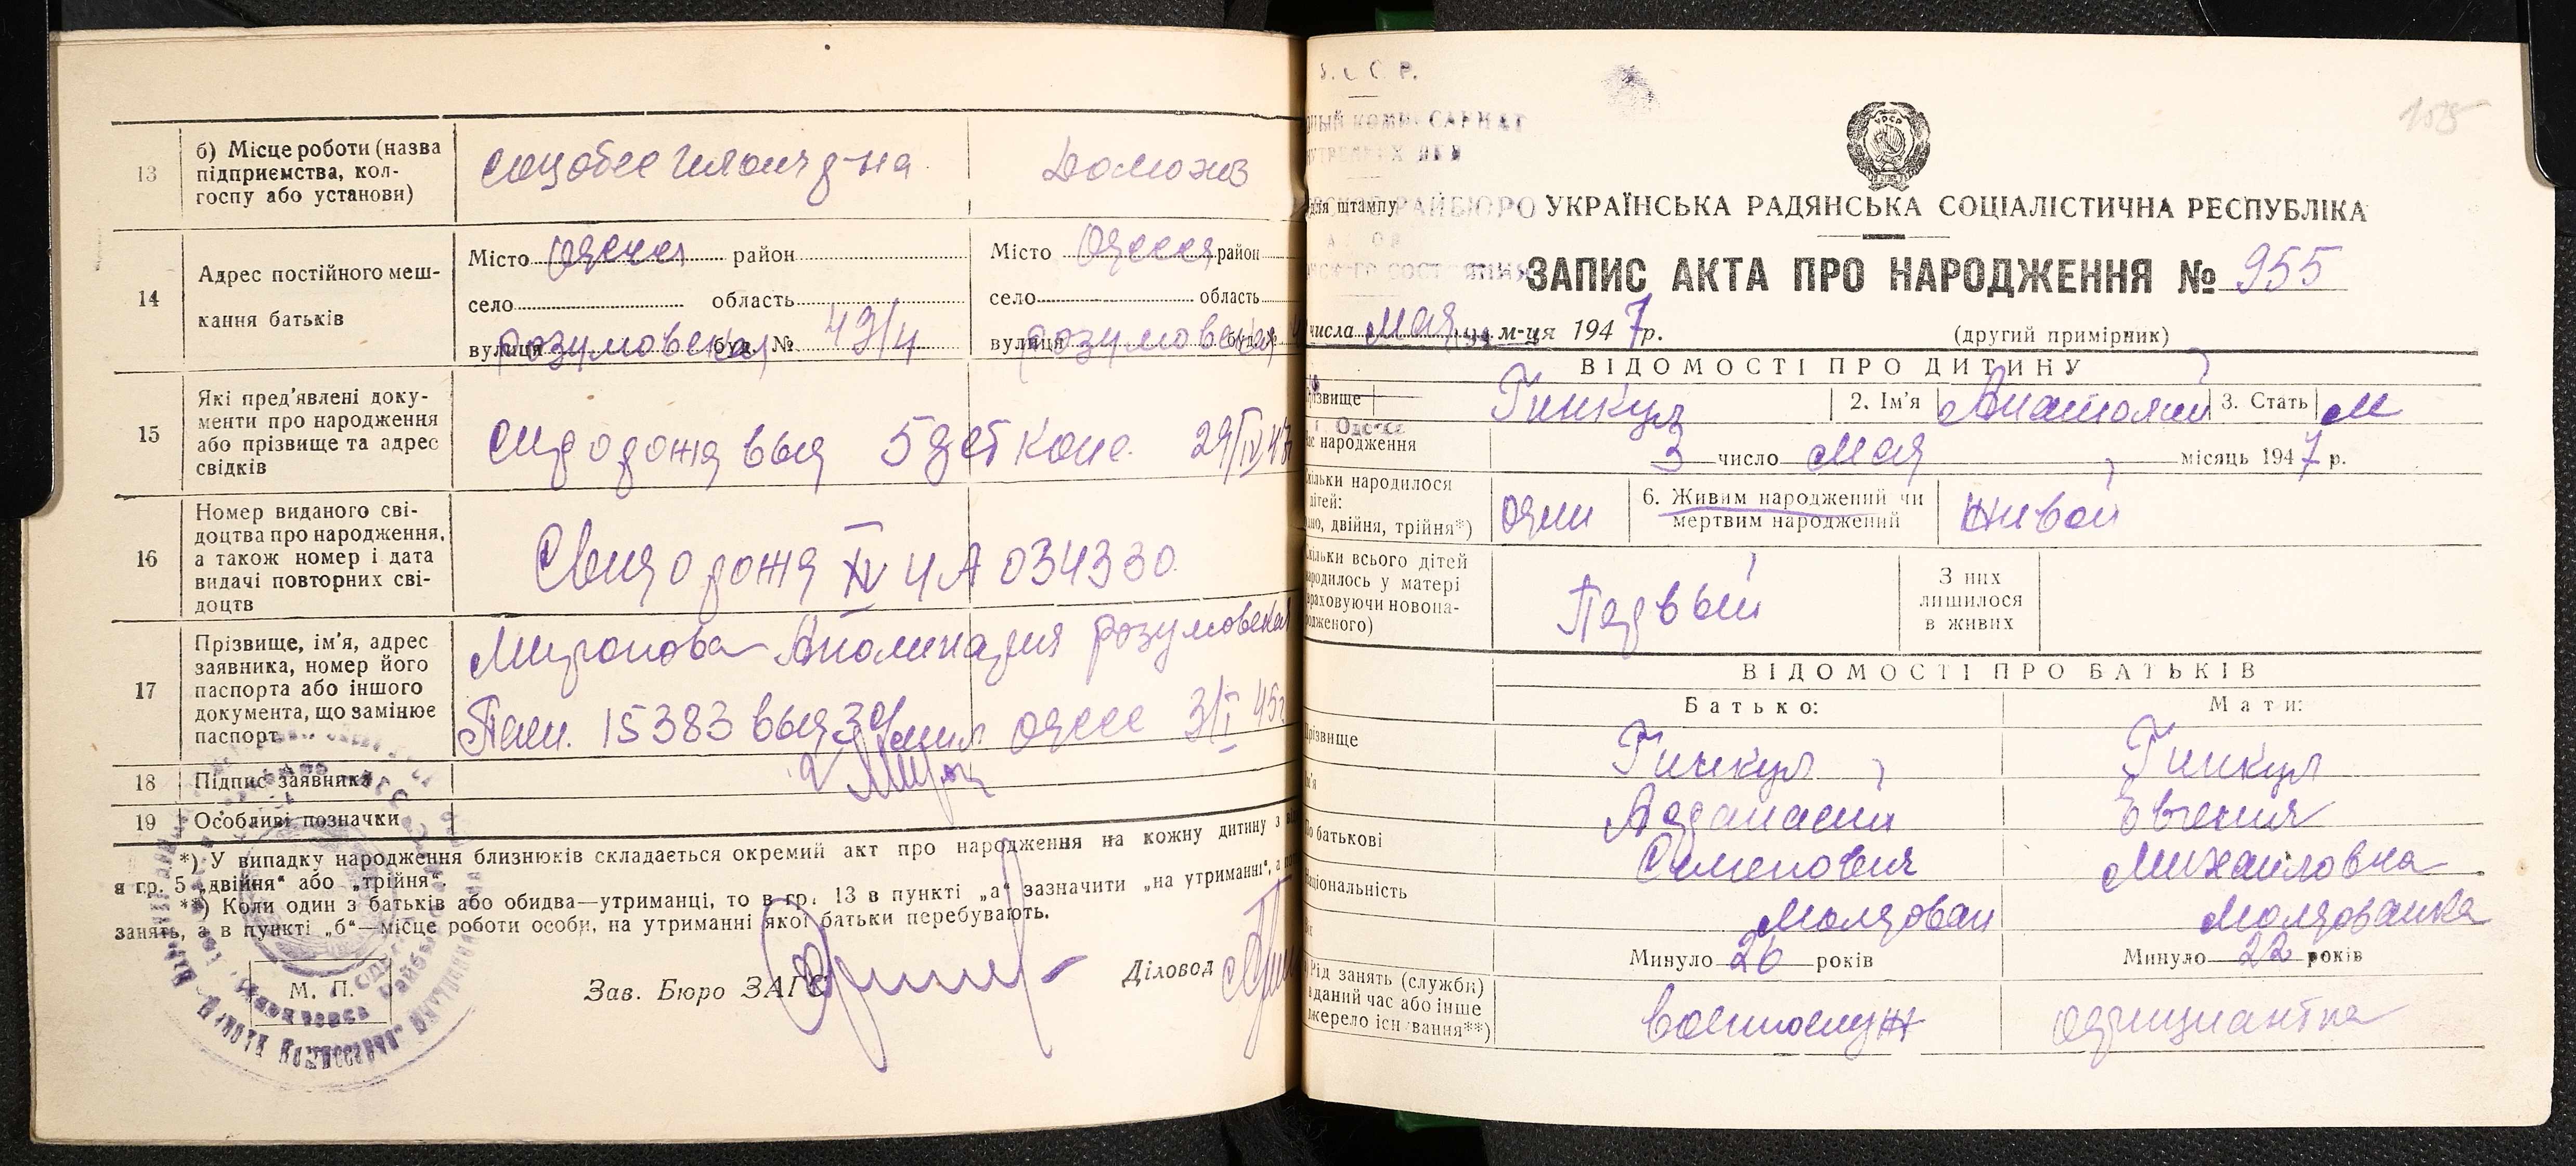 13
б) Місце роботи (назва
підприємства, кол-
госпу або установи)
14
Адрес постійного меш-
кання батьків
Місто Одесса район
село область
вулиця розумовская буд. № 43/4
Місто Одесса район
село область
вулиця розумовская буд. №
15
Які пред'явлені доку-
менти про народження
або прізвище та адрес
свідків
16
Номер виданого сві-
доцтва про народження,
а також номер і дата
видачі повторних сві-
доцтв
Свид о рожд IV ЧА 034330
17
Прізвище, ім'я, адрес
заявника, номер його
паспорта або іншого
документа, що замінює
паспорт
Миронова Аполинария розумовская
15383 выд 3 Одессе 3/I 45г
18
Підпис заявника
19
Особливі позначки
*) У випадку народження близнюків складається окремий акт про народження на кожну дитину з
в гр. 5 „двійня“ або „трійня“.
**) Коли один з батьків або обидва—утриманці, то в гр. 13 в пункті „а“ зазначити „на утриманні“, а
занять, а в пункті „б“—місце роботи особи, на утриманні якої батьки перебувають.
М. П.
Зав. Бюро ЗАГС
Діловод
для штампу
105
УКРАЇНСЬКА РАДЯНСЬКА СОЦІАЛІСТИЧНА РЕСПУБЛІКА
ЗАПИС АКТА ПРО НАРОДЖЕННЯ № 955
числа мая м-ця 1947 р.
(другий примірник)
ВІДОМОСТІ ПРО ДИТИНУ
Гинкул
2. Ім'я Анатолий
3. Стать м
народження
3 число Мая місяць 1947 р.
народилося
дітей:
двійня, трійня*)
один
6. Живим народжений чи
мертвим народжений
живой
всього дітей
народилось у матері
Первый
З них
лишилося
в живих
ВІДОМОСТІ ПРО БАТЬКІВ
Батько:
Мати:
Гинкул
Гинкул
Афанасий
Евгения
батькові
Семенович
Михайловна
Молдован
Молдованка
Минуло 26 років
Минуло 22 років
Рід занять (служби)
даний час або інше
джерело існування**)
военнослуж
официантка